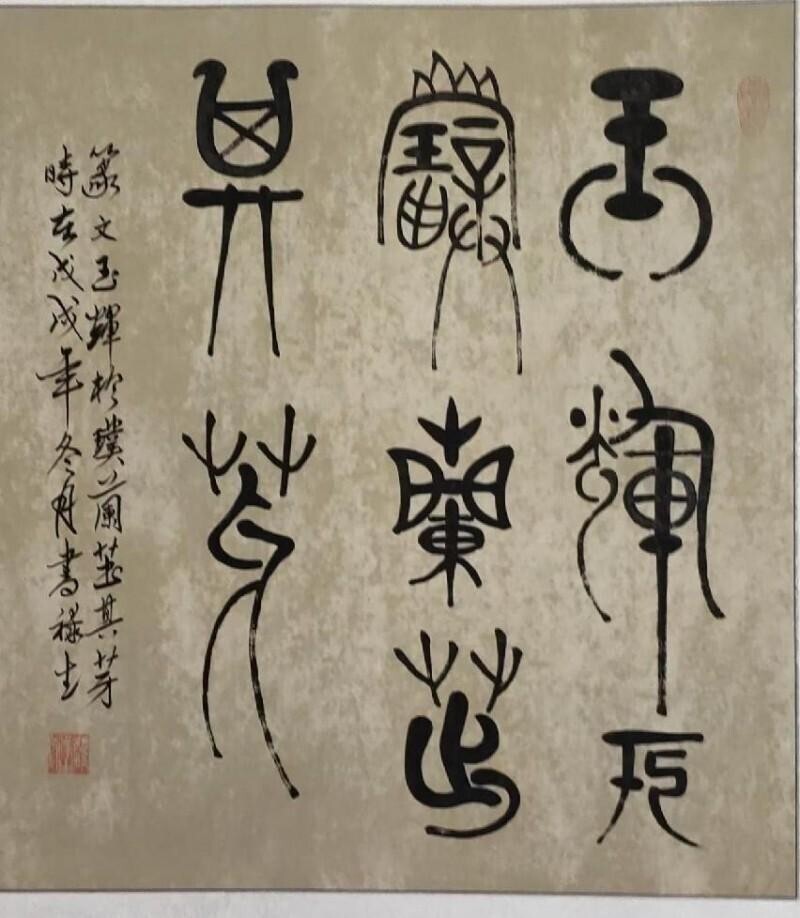 玉輝於
璞蘭茁
其芽
篆文玉輝於璞蘭茁其芽
時在戊戌年冬月書祿生